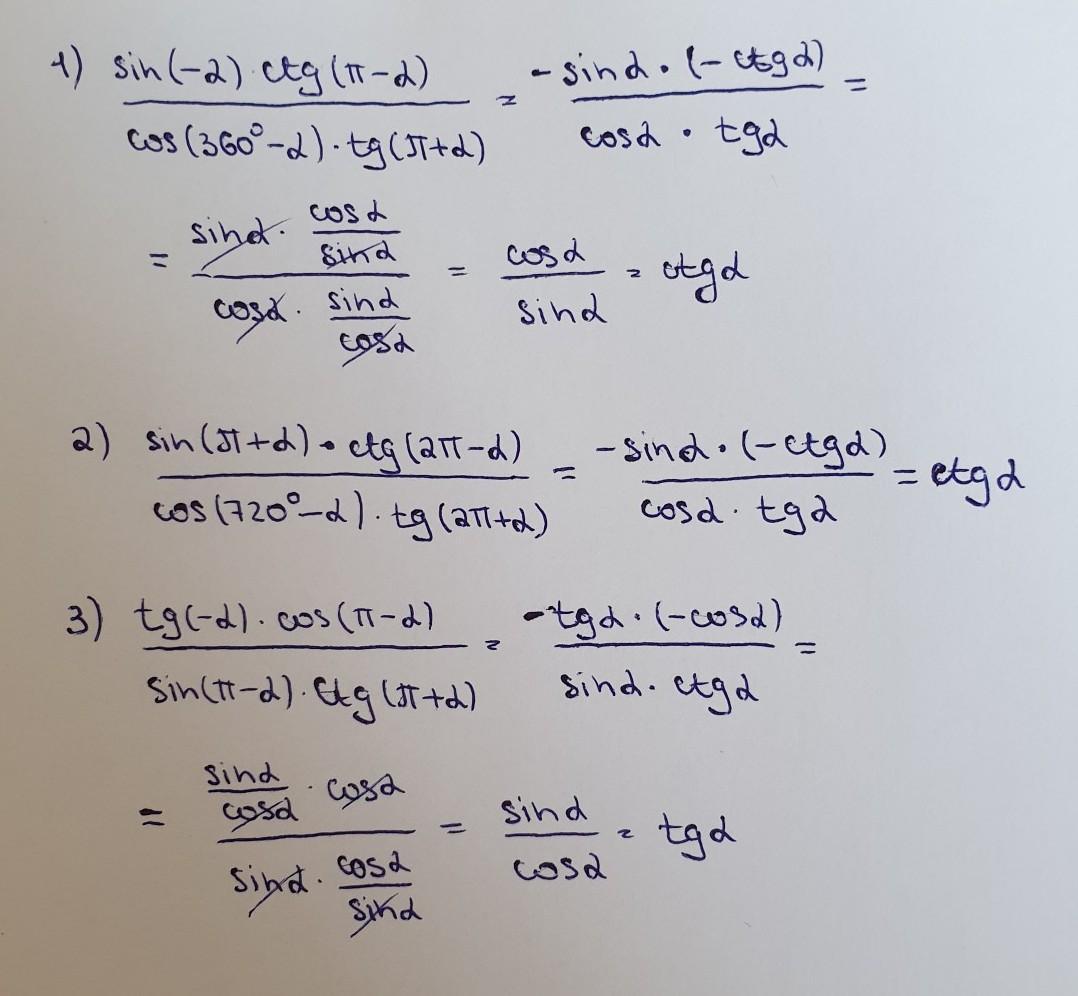 1) sin(-α) · ctg(π-α) / cos(360°-α) · tg(π+α) = -sinα · (-ctgα) / cosα · tgα =
= sinα · cosα/sinα / cosα · sinα/cosα = cosα / sinα = ctgα
2) sin(π+α) · ctg(2π-α) / cos(720°-α) · tg(2π+α) = -sinα · (-ctgα) / cosα · tgα = ctgα
3) tg(-α) · cos(π-α) / sin(π-α) · ctg(π+α) = -tgα · (-cosα) / sinα · ctgα =
= sinα/cosα · cosα / sinα · cosα/sinα = sinα / cosα = tgα